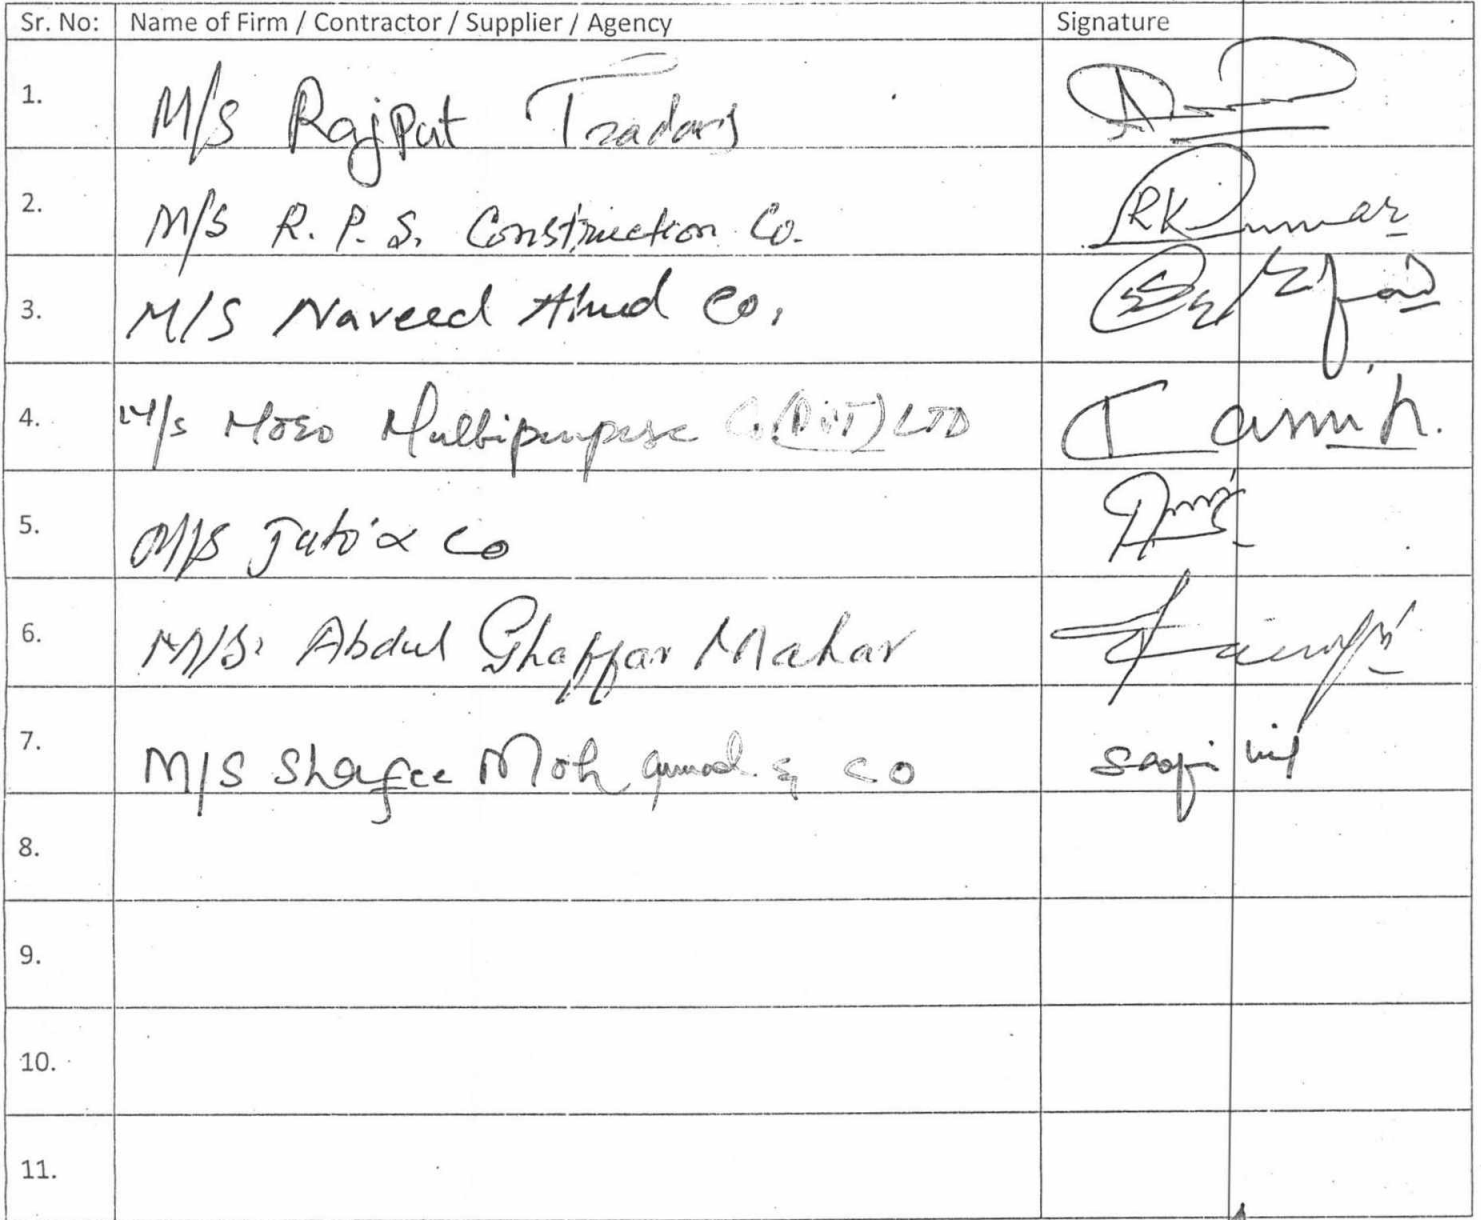 Sr. No: Name of Firm / Contractor / Supplier / Agency Signature
1. M/S RajPut Tradars
2. M/S R. P. S. Construction Co. RKumar
3. M/S Naveed Ahud Co.
4. M/s Moro Multipurpose Co (PVT) LTD
5. M/S Jatoi & Co
6. M/S. Abdul Ghaffar Mahar
7. M/S Shafee Moh ammad & CO
8.
9.
10.
11.